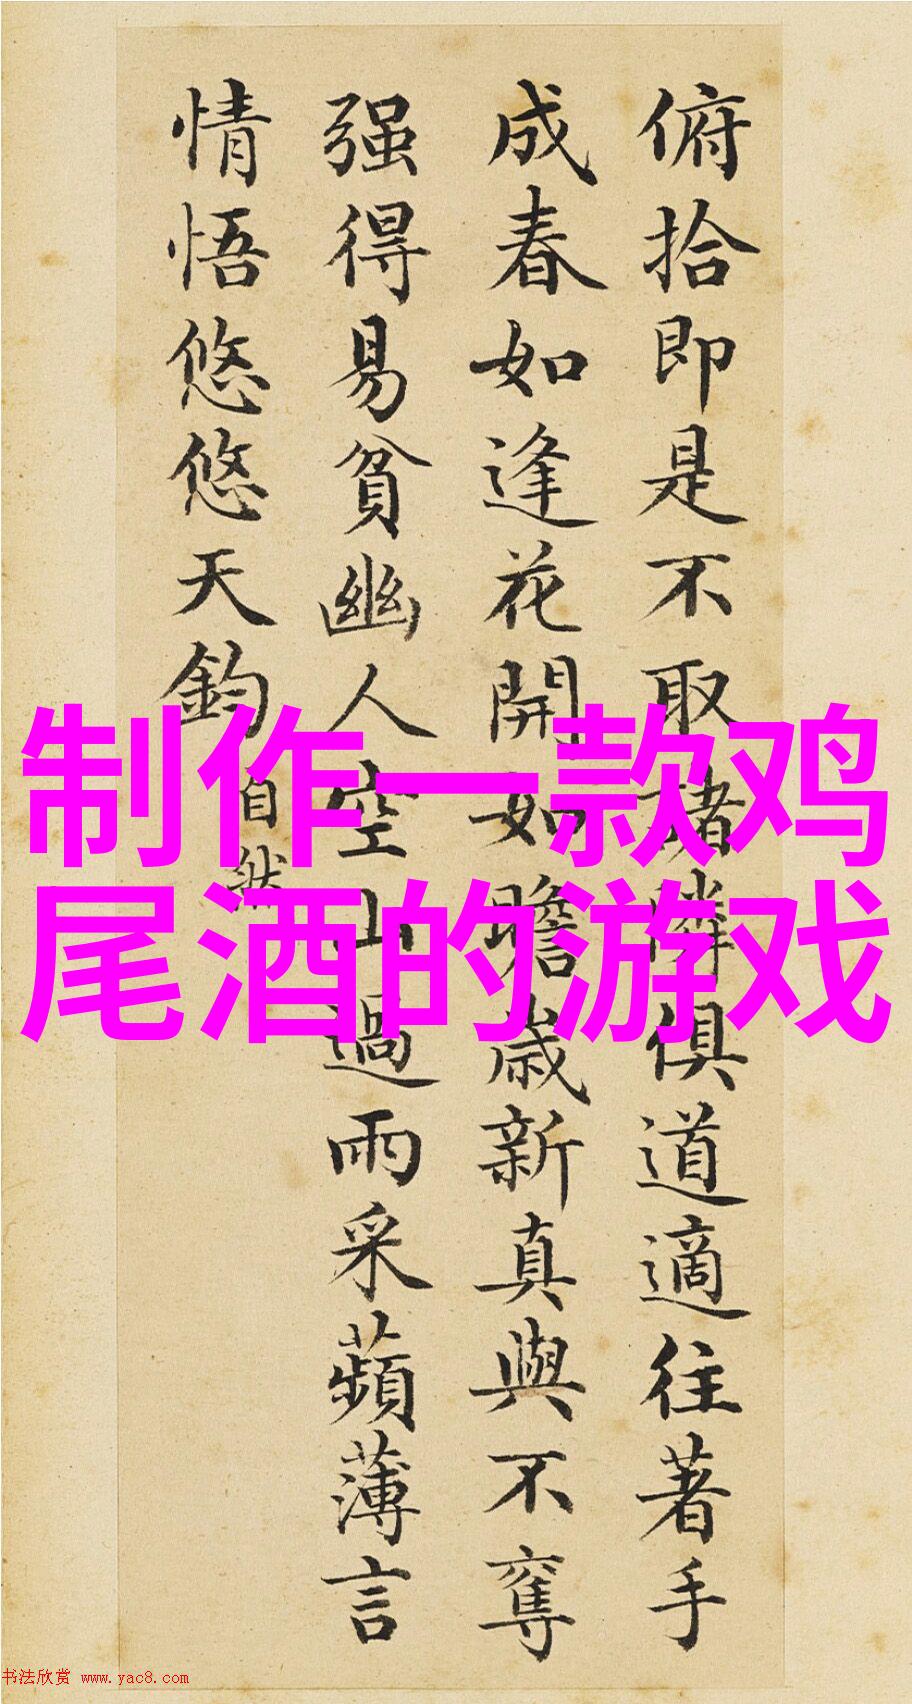 俯拾即是不取諸隣俱道適往著手
成春如逢花開如瞻歳新真與不奪
强得易貧幽人空山過雨采蘋薄言
情悟悠悠天鈞
自然
制作一款鸡
尾酒的游戏
书法欣赏 www.yac8.com